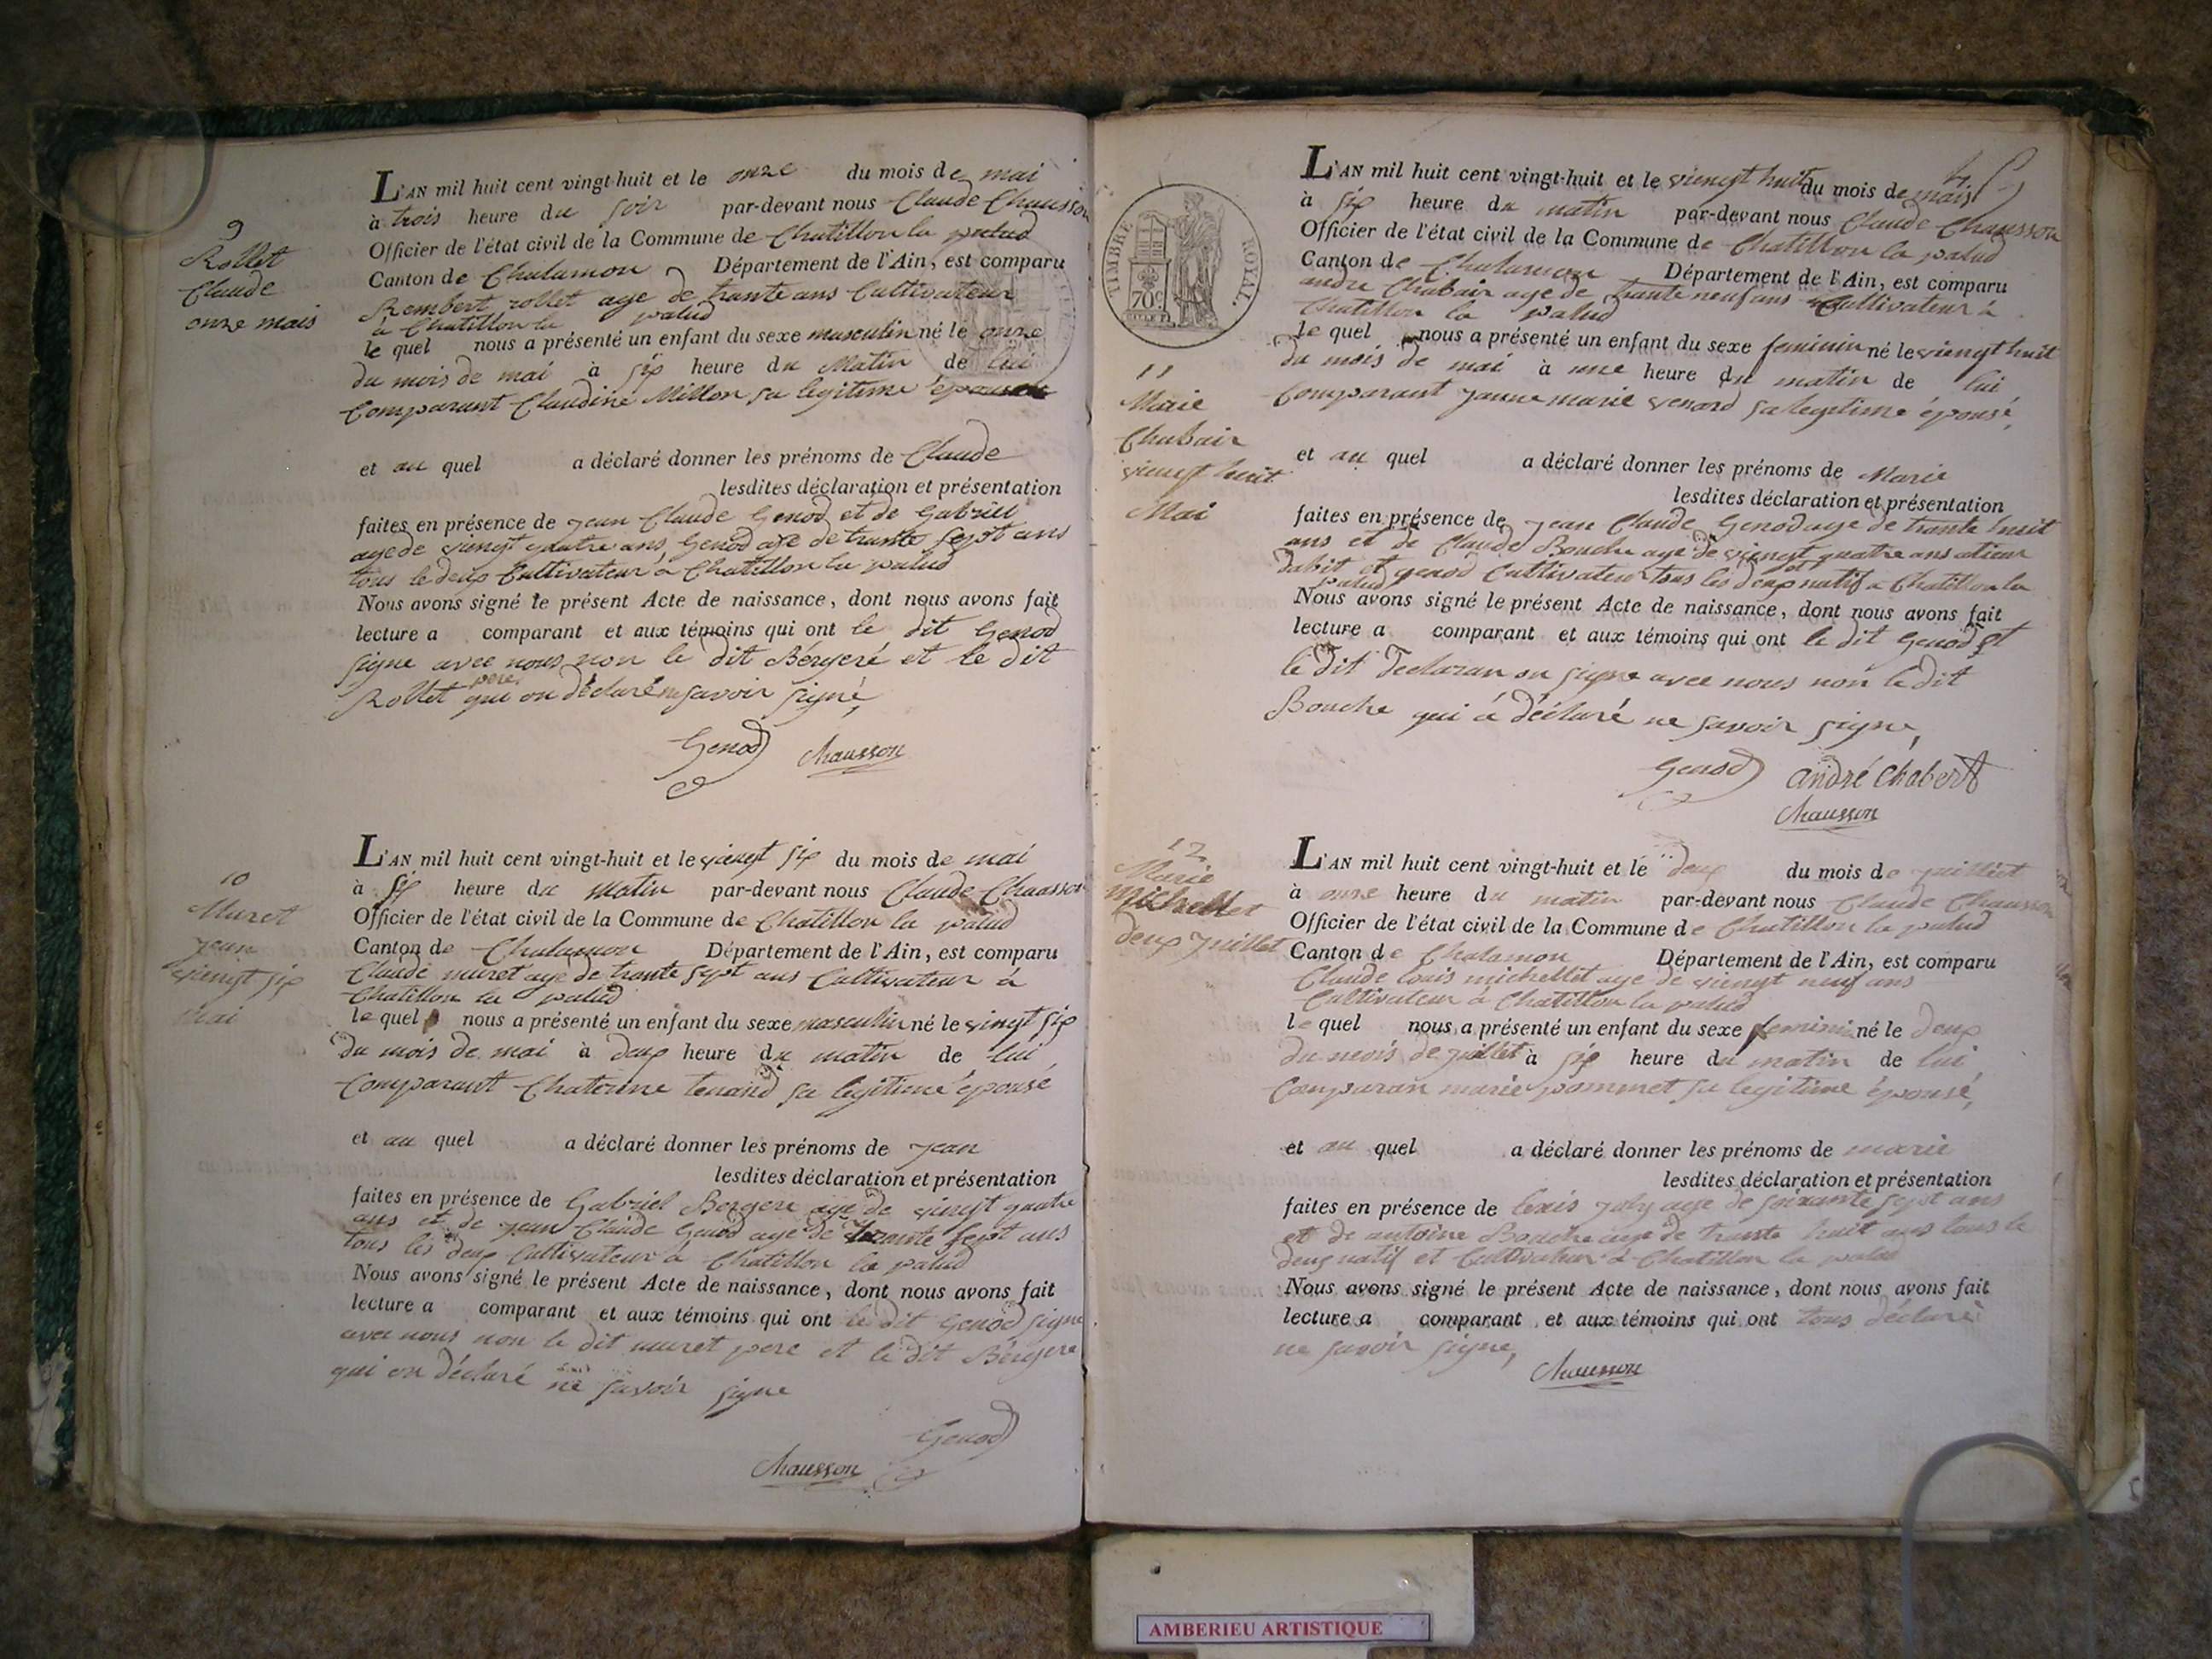 9
Rollet
Claude
onze mais
L'AN mil huit cent vingt-huit et le onze du mois de mai
à trois heure du soir par-devant nous Claude Chausson
Officier de l'état civil de la Commune de Chatillon la palud
Canton de Chalamon Département de l'Ain, est comparu
Rembert rollet age de trante ans Cultivateur
à Chatillon la palud
le quel nous a présenté un enfant du sexe masculin né le onze
du mois de mai à six heure du Matin de lui
Comparant Claudine Millon sa legitime épouse
et au quel a déclaré donner les prénoms de Claude
lesdites déclaration et présentation
faites en présence de jean Claude Genod et de Gabriel
age de viengt quatre ans, Genod age de trante sept ans
tous le deux Cultivateur à Chatillon la palud
Nous avons signé le présent Acte de naissance, dont nous avons fait
lecture a comparant et aux témoins qui ont le dit Genod
signe avec nous non le dit Bérgeré et le dit
Rollet pere qui on déclaré ne savoir signé,
Genod Chausson
10
Muret
jean
viengt six
Mai
L'AN mil huit cent vingt-huit et le viengt six du mois de mai
à six heure du matin par-devant nous Claude Chausson
Officier de l'état civil de la Commune de Chatillon la palud
Canton de Chalamon Département de l'Ain, est comparu
Claude muret age de trante sept ans Cultivateur à
Chatillon la palud
le quel nous a présenté un enfant du sexe masculin né le vingt six
du mois de mai à deux heure du matin de lui
Comparant Chaterine tenand sa legitime épousé
et au quel a déclaré donner les prénoms de jean
lesdites déclaration et présentation
faites en présence de Gabriel Bergere age de viengt quatre
ans et de jean Claude Genod age de trante sept ans
tous les deux Cultivateur à Chatillon la palud
Nous avons signé le présent Acte de naissance, dont nous avons fait
lecture a comparant et aux témoins qui ont le dit Genod signe
avec nous non le dit muret pere et le dit Bérgere
qui on déclaré ne savoir signe
Genod
Chausson
TIMBRE ROYAL.
70c
11
Marie
Chabair
viengt huit
Mai
L'AN mil huit cent vingt-huit et le viengt huit du mois de mais
à six heure du matin par-devant nous Claude Chausson
Officier de l'état civil de la Commune de Chatillon la palud
Canton de Chalamon Département de l'Ain, est comparu
andre Chabair age de trante neuf ans Cultivateur à
Chatillon la palud
le quel nous a présenté un enfant du sexe feminin né le viengt huit
du mois de mai à une heure du matin de lui
Comparant janne marie venard sa legitime épousé,
et au quel a déclaré donner les prénoms de Marie
lesdites déclaration et présentation
faites en présence de jean Claude Genod age de trante huit
ans et de Claude Bouche age de viengt quatre ans
dabit et genod Cultivateur tous les deux natif a Chatillon la
palud
Nous avons signé le présent Acte de naissance, dont nous avons fait
lecture a comparant et aux témoins qui ont le dit Genod et
le dit declaran on signe avec nous non le dit
Bouche qui à déclaré ne savoir signe,
Genod andré Chabert
Chausson
12
Marie
Michellet
deux juillet
L'AN mil huit cent vingt-huit et le deux du mois de juilliet
à onze heure du matin par-devant nous Claude Chausson
Officier de l'état civil de la Commune de Chatillon la palud
Canton de Chalamon Département de l'Ain, est comparu
Claude louis michellet age de viengt neuf ans
Cultivateur à Chatillon la palud
le quel nous a présenté un enfant du sexe feminin né le deux
du mois de juillet à six heure du matin de lui
Comparan marie pommet sa legitime épousé,
et au quel a déclaré donner les prénoms de marie
lesdites déclaration et présentation
faites en présence de joly age de soixante sept ans
et de antoine Bouche age de trante huit ans tous le
deux natif et Cultivateur à Chatillon la palud
Nous avons signé le présent Acte de naissance, dont nous avons fait
lecture a comparant et aux témoins qui ont tous déclaré
ne savoir signe,
Chausson
AMBERIEU ARTISTIQUE